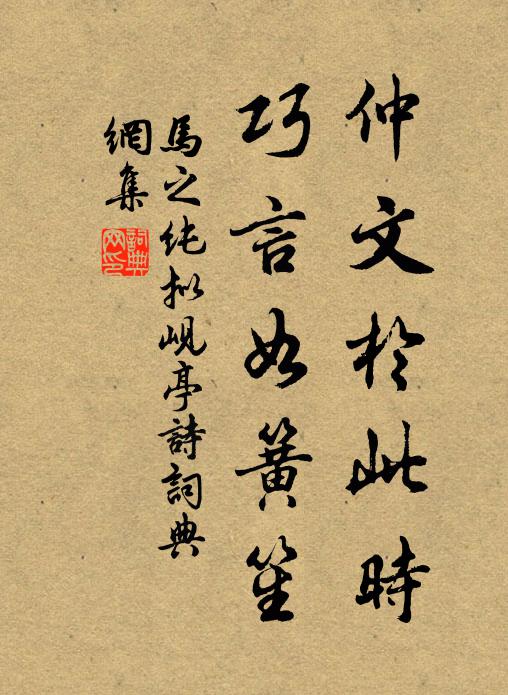 仲文於此時
巧言如簧笙
馬之純拟峴亭詩詞典
網集
詞典網印